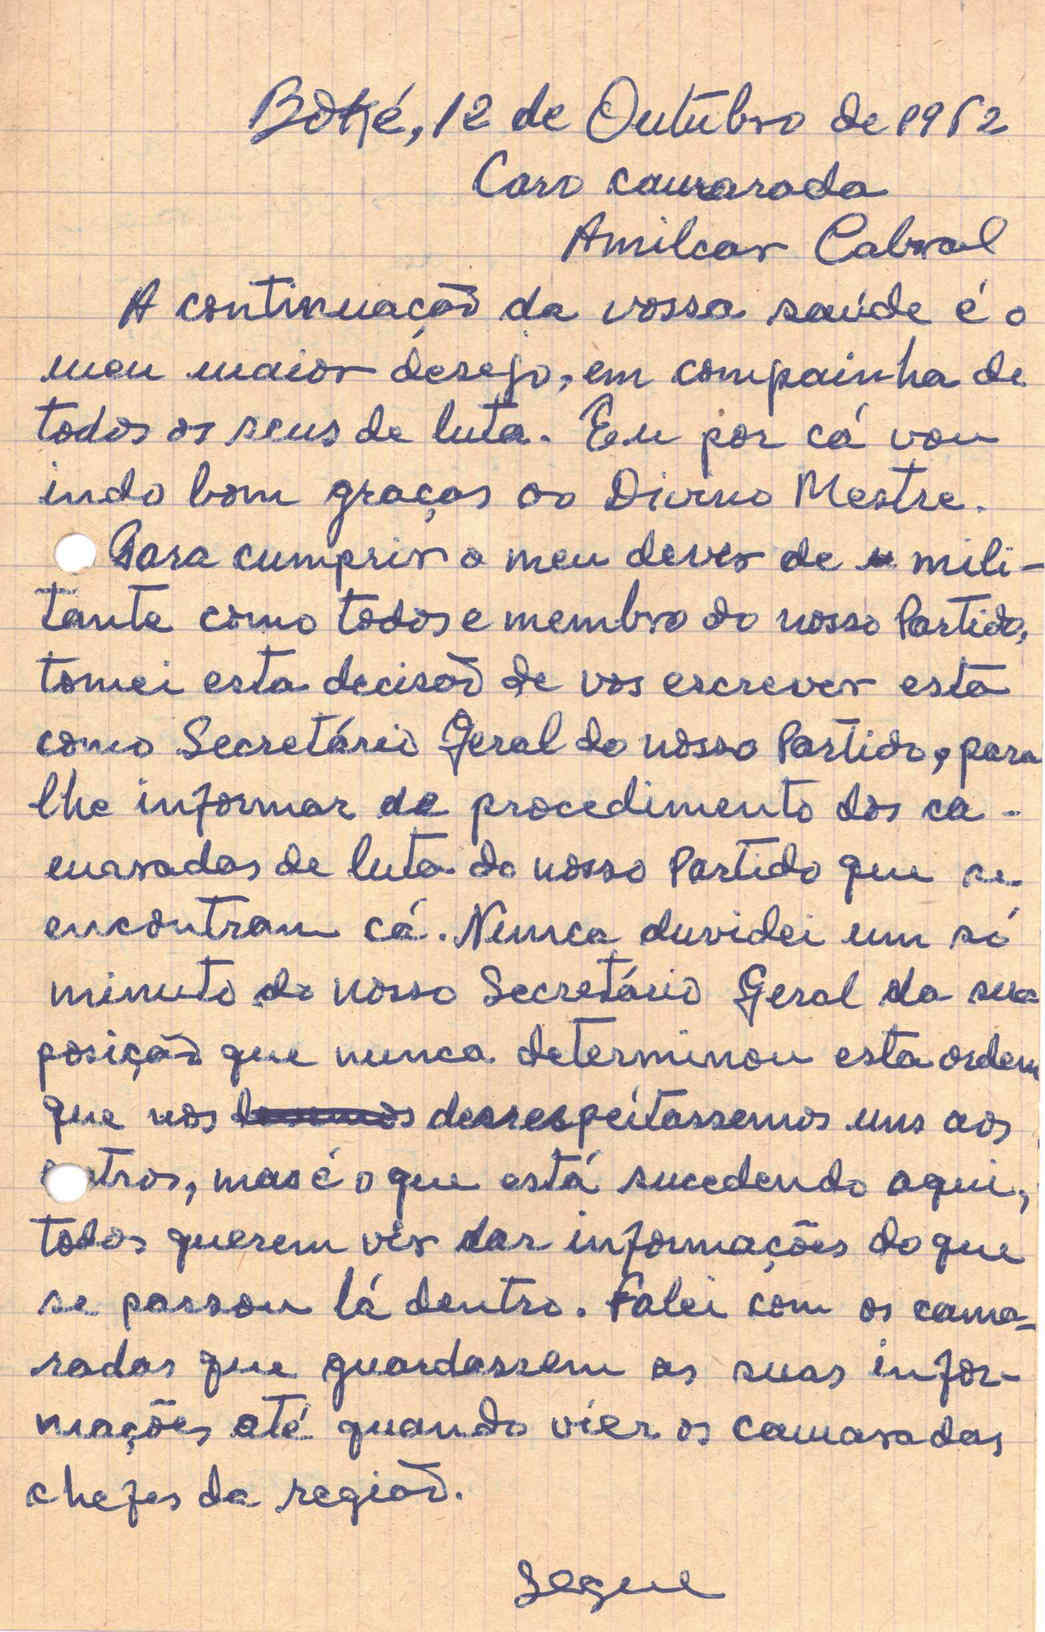 Boké, 12 de Outubro de 1962
Caro camarada
Amilcar Cabral
A continuação da vossa saúde é o
meu maior desejo, em compainha de
todos os seus de luta. Eu por cá vou
indo bom graças ao Divino Mestre.
Para cumprir o meu dever de mili-
tante como todos e membro do nosso Partido,
tomei esta decisão de vos escrever esta
como Secretário Geral do nosso Partido, para
lhe informar de procedimento dos ca-
maradas de luta do nosso Partido que se
encontram cá. Nunca duvidei um só
minuto do nosso Secretário Geral da sua
posição que nunca determinou esta ordem
que nos desrespeitassemos uns aos
outros, mas é o que está sucedendo aqui,
todos querem vir dar informações do que
se passou lá dentro. Falei com os cama-
radas que guardassem as suas infor-
mações até quando vier os camaradas
chefes da região.
Segue